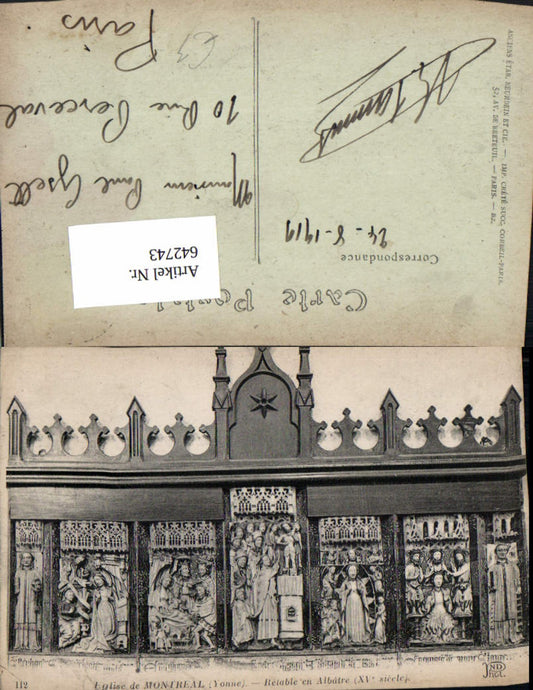 Carte Postale
Correspondance
24-8-1919
Monsieur Paul Gsell
10 Rue Perceval
Paris
ANCIENS ÉTAB. NEURDEIN ET CIE. — IMP. CRÉTÉ SUCC. CORBEIL-PARIS.
52, AV. DE BRETEUIL. — PARIS. — BZ.
Artikel Nr.
642743
112 Eglise de MONTREAL (Yonne). — Retable en Albâtre (XVe siècle).
ND
Phot.